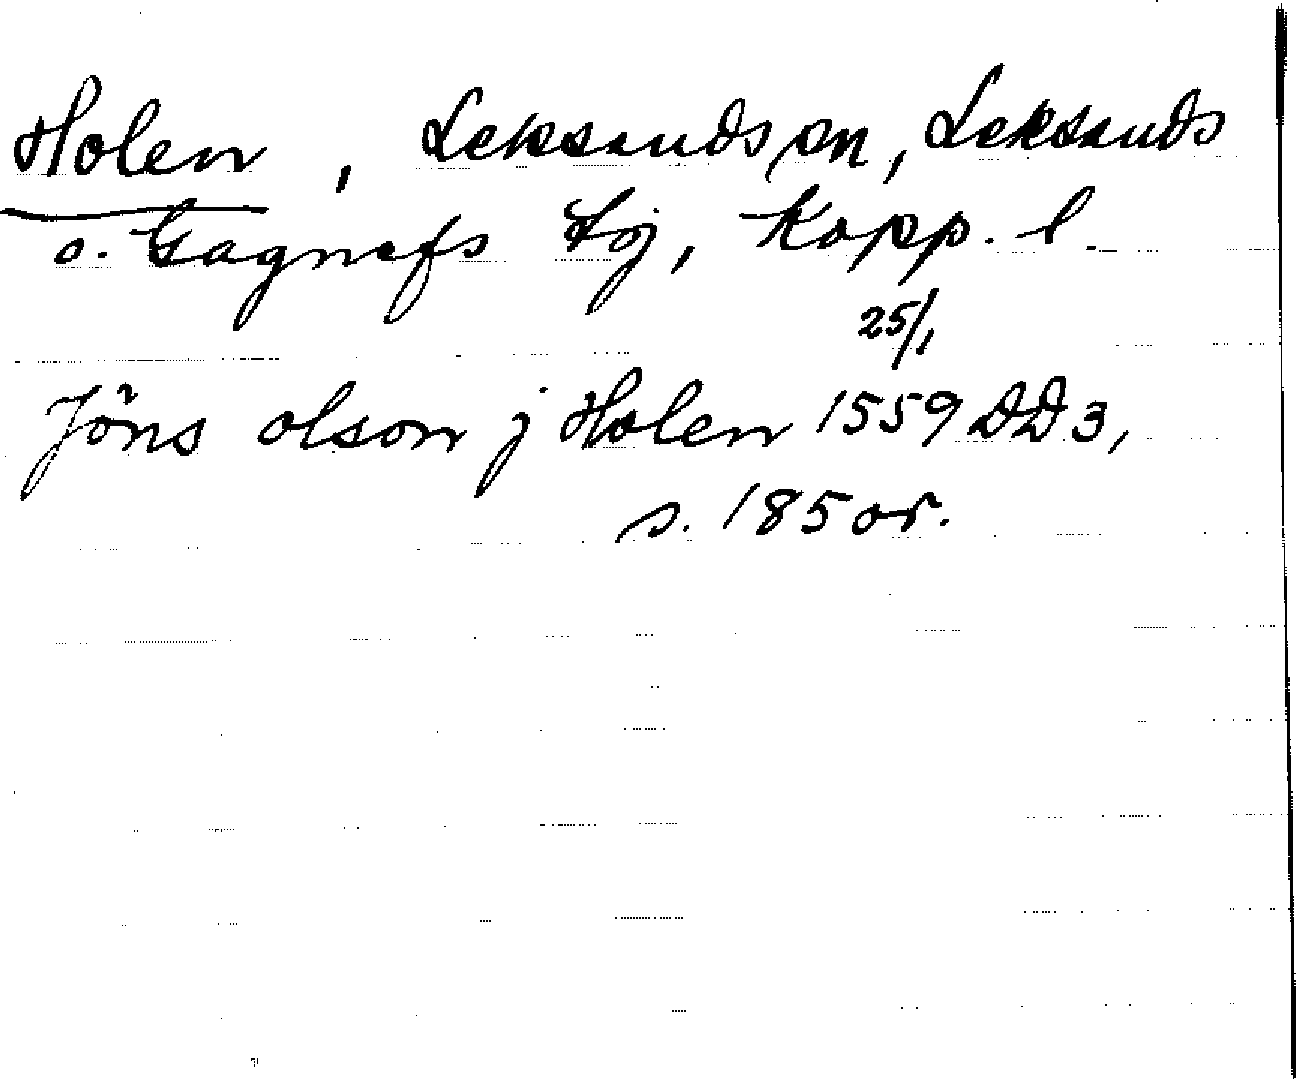 Holen, Leksands sn, Leksands
o. Gagnefs tg, Kopp. l.
25/1
Jöns olson j Holen 1559 DD 3,
s. 185 or.